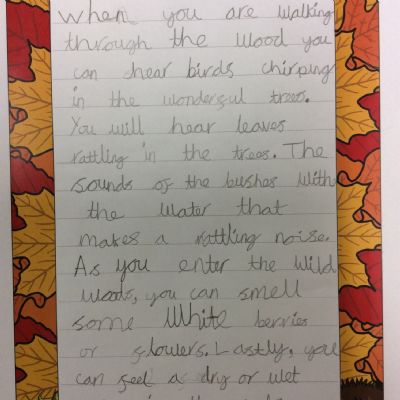 When you are walking
through the wood you
can hear birds chirping
in the wonderful trees.
You will hear leaves
rattling in the trees. The
sounds of the bushes with
the water that
makes a rattling noise.
As you enter the wild
woods, you can smell
some White berries
or flowers. Lastly, you
can feel a dry or wet